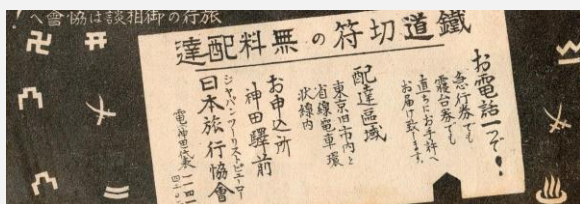 旅行の御相談は協會へ!
鐵道切符の無料配達
お電話一つで!
急行券でも
寢台券でも
直ちにお手許へ
お届け致します。
配達區域
東京旧市内と
省線電車環
状線内
お申込所
神田驛前
ジャパンツーリストビューロー
日本旅行協會
電神田